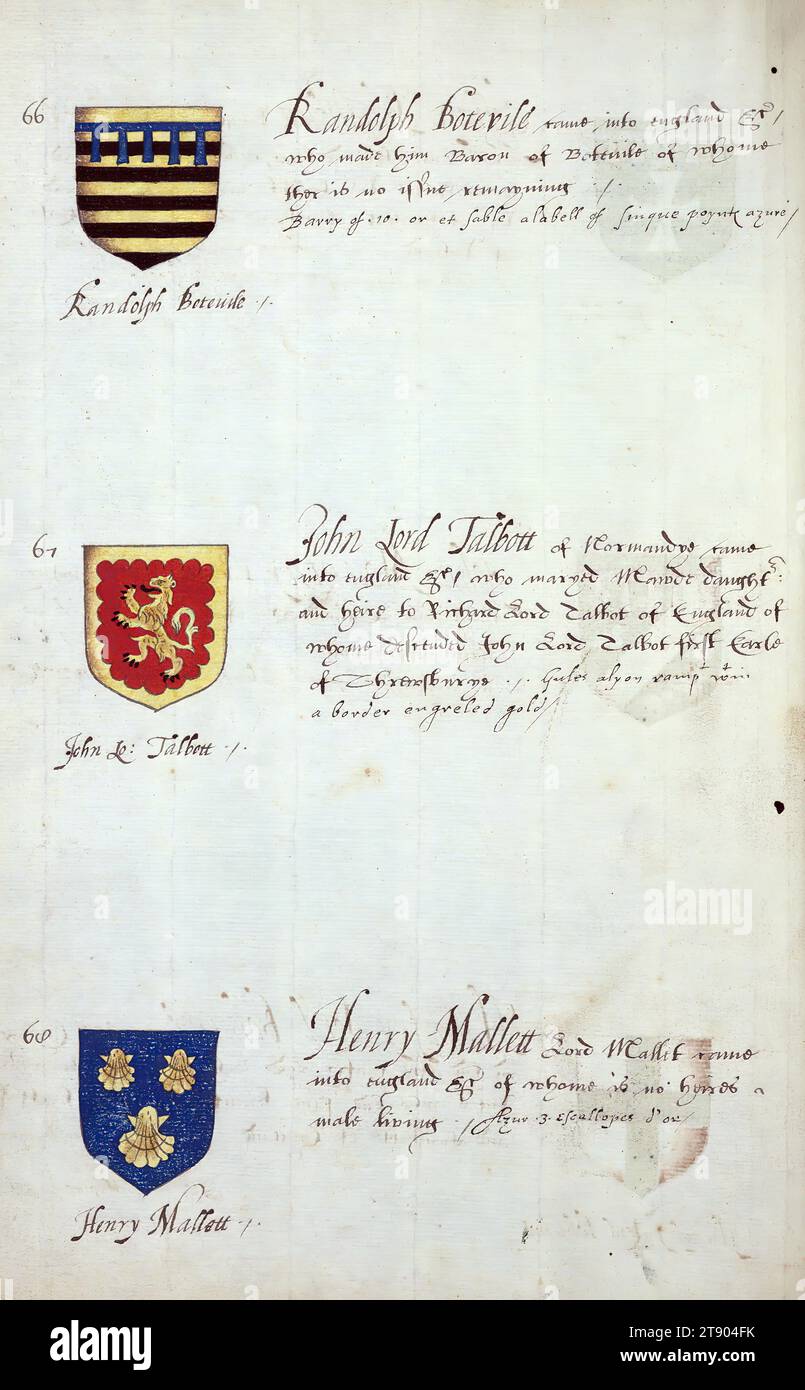 66
Randolph Botevile came into england &c /
who made him Baron of Botevile of whome
ther is no issue remayning /.
Barry of .10. or et sable a labell of sinque poynts azure /
Randolph Botevile ./.
67
John Lord Talbott of Normandye came
into england &c / who maryed Mawde daught:
and heire to Richard Lord Talbot of England of
whome descended John Lord Talbot first Earle
of Shrewsburye ./. Gules a lyon ramp wtin
a border engreled gold /
John Lo: Talbott ./.
68
Henry Mallett Lord Mallet came
into england &c of whome is no heires
male living ./ Azur .3. escallopes d'or /
Henry Mallett ./.
alamy
alamy
Image ID: 2T904FK
www.alamy.com